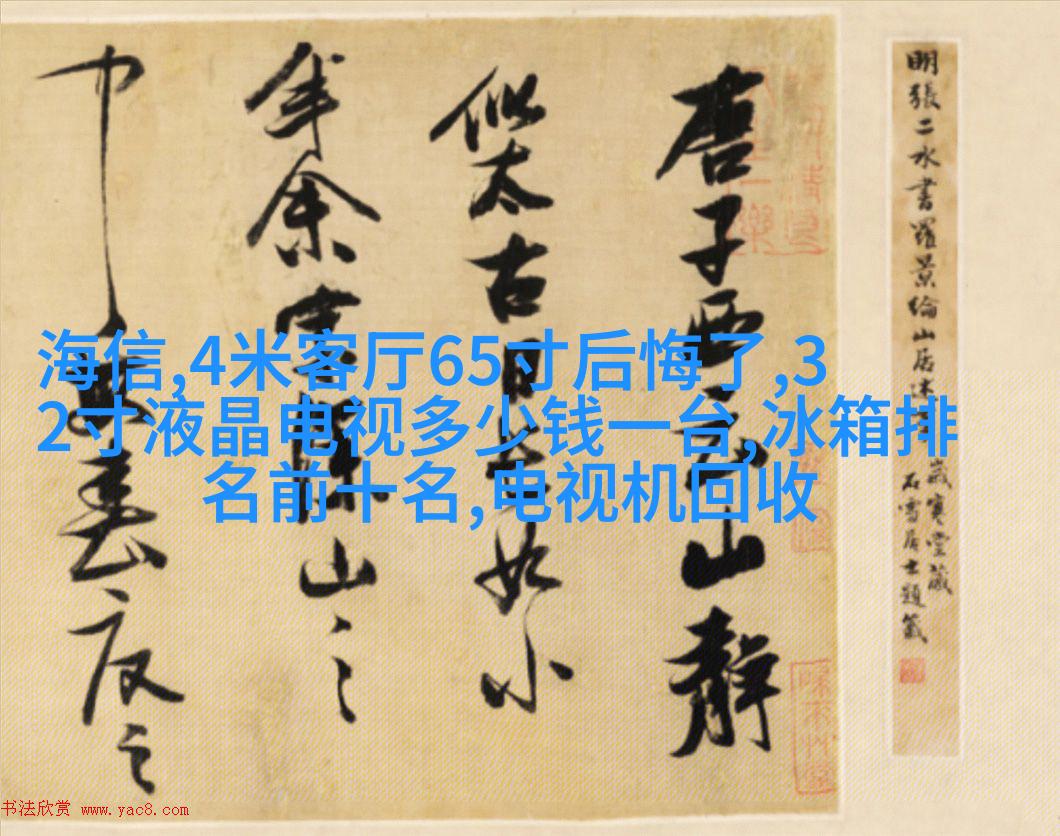 明張二水書羅景綸山居
歲寒堂藏
石雪居士題籤
唐子西云山静
似太古日長如小
年余家深山之
中每春夏之
海信,4米客厅65寸后悔了,3
2寸液晶电视多少钱一台,冰箱排
名前十名,电视机回收
书法欣赏 www.yac8.com